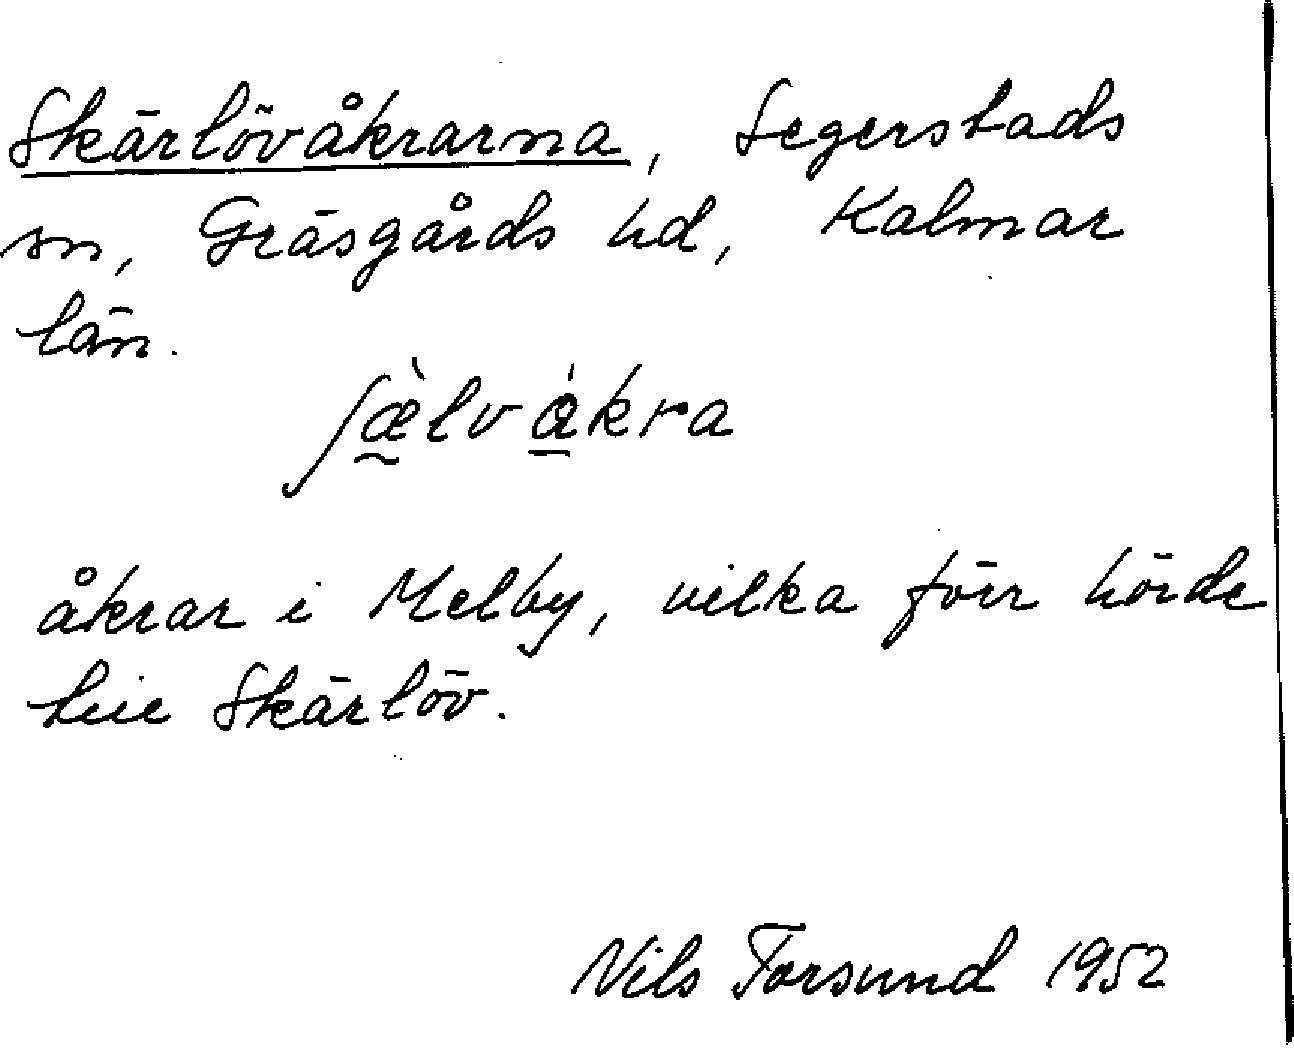 Skärlövåkrarna, Segerstads
sn, Gräsgårds hd, Kalmar
län.
ʃæ̀lvákra
åkrar i Melby, vilka förr hörde
till Skärlöv.
Nils Torsund 1952